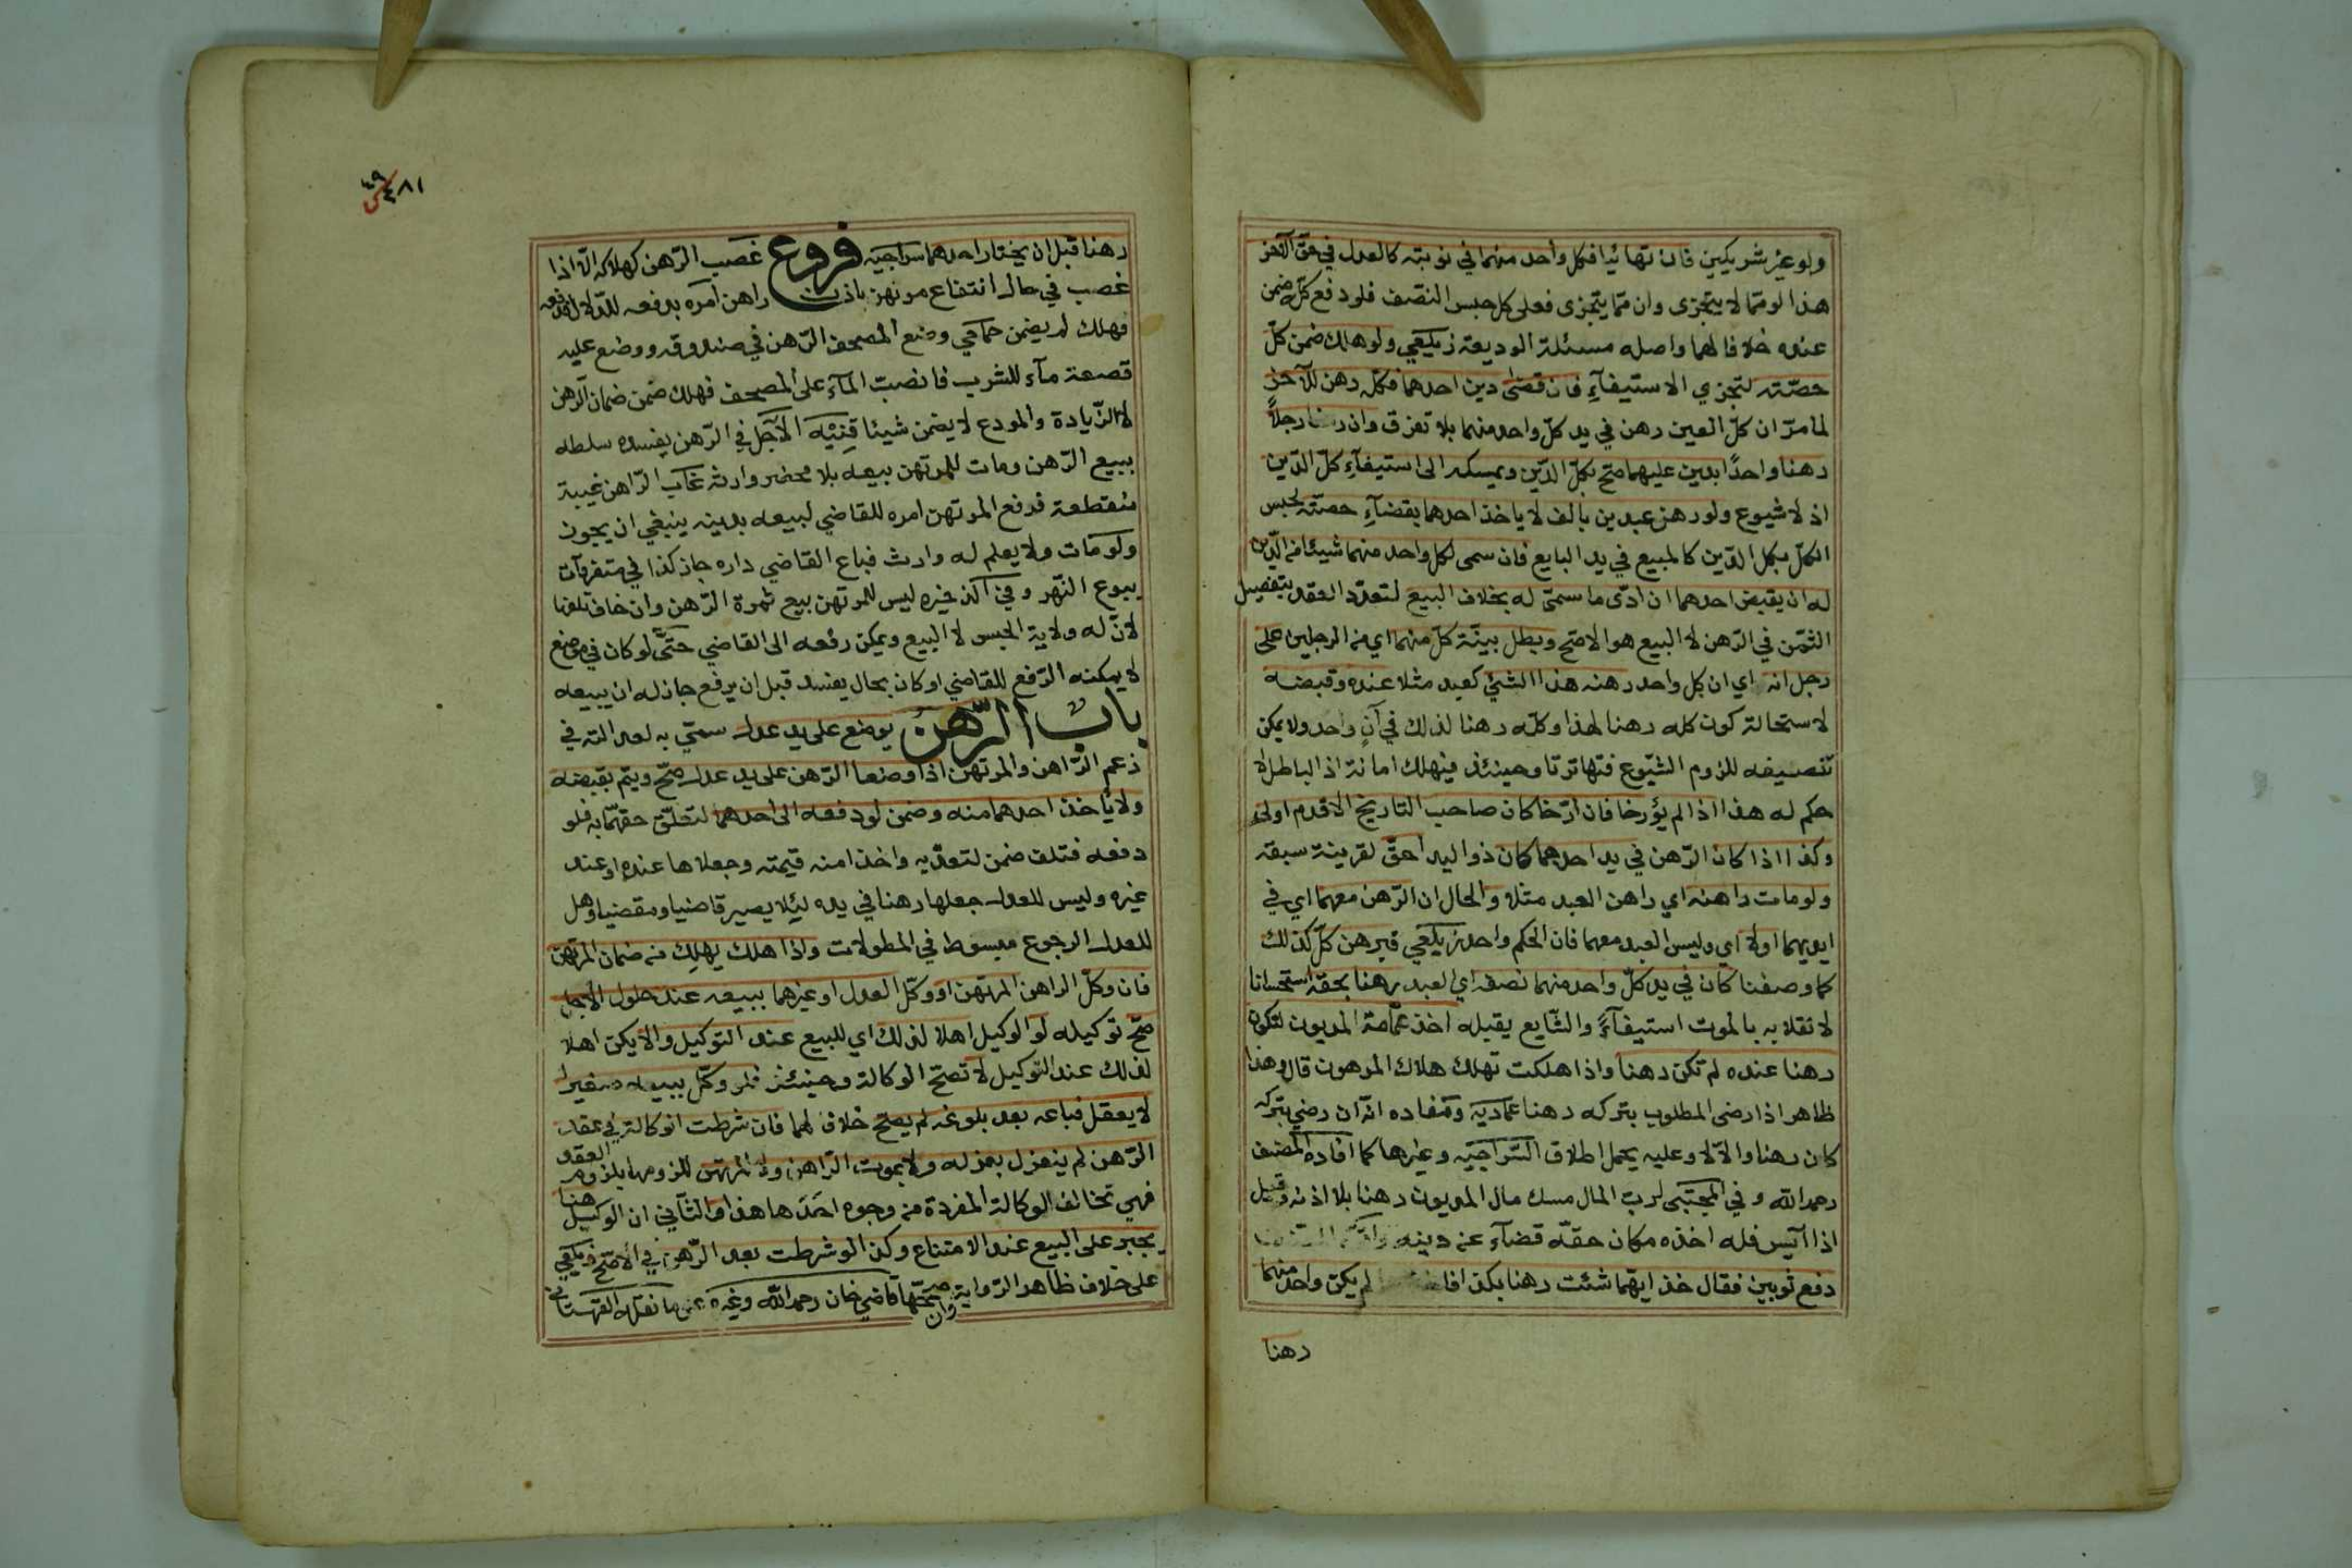 ولو غير شريكين فان تهائيا فكل واحد منهما في نوبته كالعدل في حق الآخر
هذا لو مما لا يتجزى وان مما يتجزى فعلى كل حبس النصف فلو دفع كله ضمن
عنده خلافا لهما واصله مسئلة الوديعة زيلعي ولو هلك ضمن كلّ
حصّته لتجزي الاستيفآءِ فان قضى دين احدهما فكلّه رهن للآخر
لما مرّ ان كلّ العين رهن في يد كلّ واحد منهما بلا تفرق وان رهنا رجلاً
رهنا واحدًا بدين عليهما صحّ بكلّ الدّين ويمسكه الى استيفآءِ كلّ الدّين
اذ لا شيوع ولو رهن عبدين بالف لا ياخذ احدهما بقضآءِ حصّته لحبس
الكلّ بكل الدّين كالمبيع في يد البايع فان سمى لكل واحد منهما شيئا من الدّين
له ان يقبض احدهما ان ادّى ما سمّى له بخلاف البيع لتعدّد العقد بتفصيل
الثمّن في الرّهن لا البيع هو الاصّح وبطل بيّنة كلّ منهما اي من الرجلين على
رجل انه اي ان كل واحد رهنه هذا الشئ كعبد مثلا عنده وقبضه
لاستحالة كون كله رهنا لهذا وكلّه رهنا لذلك في آنٍ واحد ولا يمكن
تنصيفه للزوم الشيّوع فتهاترتا وحينئذ فيهلك امانة اذ الباطل لا
حكم له هذا اذا لم يؤرخا فان ارّخا كان صاحب التاريخ الاقدم اولى
وكذا اذا كان الرّهن في يد احدهما كان ذو اليد احقّ لقرينة سبقه
ولو مات راهنه اي راهن العبد مثلا والحال ان الرّهن معهما اي في
ايديهما اولا اي وليس العبد معهما فان الحكم واحد زيلعي فبرهن كلّ كذلك
كما وصفنا كان في يد كلّ واحد منهما نصفه اي العبد رهنا بحقه استحسانا
لانقلابه بالموت استيفآءً والشّايع يقبله اخذ عمّامة المديون لتكون
رهنا عنده لم تكن رهنا واذا هلكت تهلك هلاك المرهون قال وهذا
ظاهر اذا رضى المطلوب بتركه رهنا عمادية ومفاده انّه ان رضي بتركه
كان رهنا والّا لا وعليه يحمل اطلاق السّراجيّه وغيرها كما افاده المصنف
رحمه الله وفي المجتبى لربّ المال مسك مال المديون رهنا بلا اذنه وقيل
اذا آيس فله اخذه مكان حقّه قضآء عن دينه
دفع ثوبين فقال خذ ايّهما شئت رهنا بكذا فاخذهما لم يكن واحد منهما
رهنا
٤٨١
رهنا قبل ان يختار احدهما سراجيّه فروع غصب الرّهن كهلاكه الّا اذا
غصب في حال انتفاع مرتهن باذن راهن امره بدفعه للدّلال فدفعه
فهلك لم يضمن حمّامي وضع المصحف الرّهن في صندوقه ووضع عليه
قصعة مآء للشرب فانصبّ المآء على المصحف فهلك ضمن ضمان الرّهن
لا الزّيادة والمودع لا يضمن شيئا قنيه الأجل في الرّهن يفسده سلطه
ببيع الرّهن ومات للمرتهن بيعه بلا محضر وارثه غاب الرّاهن غيبة
منقطعة فرفع المرتهن امره للقاضي ليبيعه بدينه ينبغي ان يجوز
ولو مات ولا يعلم له وارث فباع القاضي داره جاز كذا في متفرقات
بيوع النّهر وفي الذخيره ليس للمرتهن بيع ثمرة الرّهن وان خاف تلفها
لانّ له ولاية الحبس لا البيع ويمكن رفعه الى القاضي حتّى لو كان في موضع
لا يمكنه الرّفع للقاضي او كان بحال يفسد قبل ان يرفع جاز له ان يبيعه
باب الرّهن يوضع على يد عدل سمّي به لعدالته في
زعم الرّاهن والمرتهن اذا وضعا الرّهن على يد عدل صحّ ويتم بقبضه
ولا يأخذ احدهما منه وضمن لو دفعه الى احدهما لتعلّق حقّهما به فلو
دفعه فتلف ضمن لتعدّيه واخذا منه قيمته وجعلاها عنده او عند
غيره وليس للعدل جعلها رهنا في يده ليئلا يصير قاضيا ومقضيا وهل
للعدل الرجوع مبسوط في المطولات واذا هلك يهلك من ضمان المرتهن
فان وكّل الراهن المرتهن او وكّل العدل او غيرهما ببيعه عند حلول الاجل
صحّ توكيله لو الوكيل اهلا لذلك اي للبيع عند التوكيل والا يكن اهلا
لذلك عند التّوكيل لا تصحّ الوكالة وحينئذ فلو وكّل ببيعه صغيرا
لا يعقل فباعه بعد بلوغه لم يصحّ خلافا لهما فان شرطت الوكالة في عقد
الرّهن لم ينعزل بعزله ولا بموت الرّاهن ولا المرتهن للزومها بلزوم العقد
فهي تخالف الوكالة المفردة من وجوه احدها هذا والثّاني ان الوكيل هنا
يجبر على البيع عند الامتناع وكذا لو شرطت بعد الرّهن في الاصّح زيلعي
على خلاف ظاهر الرّواية وان صححّها قاضي خان رحمه الله وغيره على ما نقله القهستاني